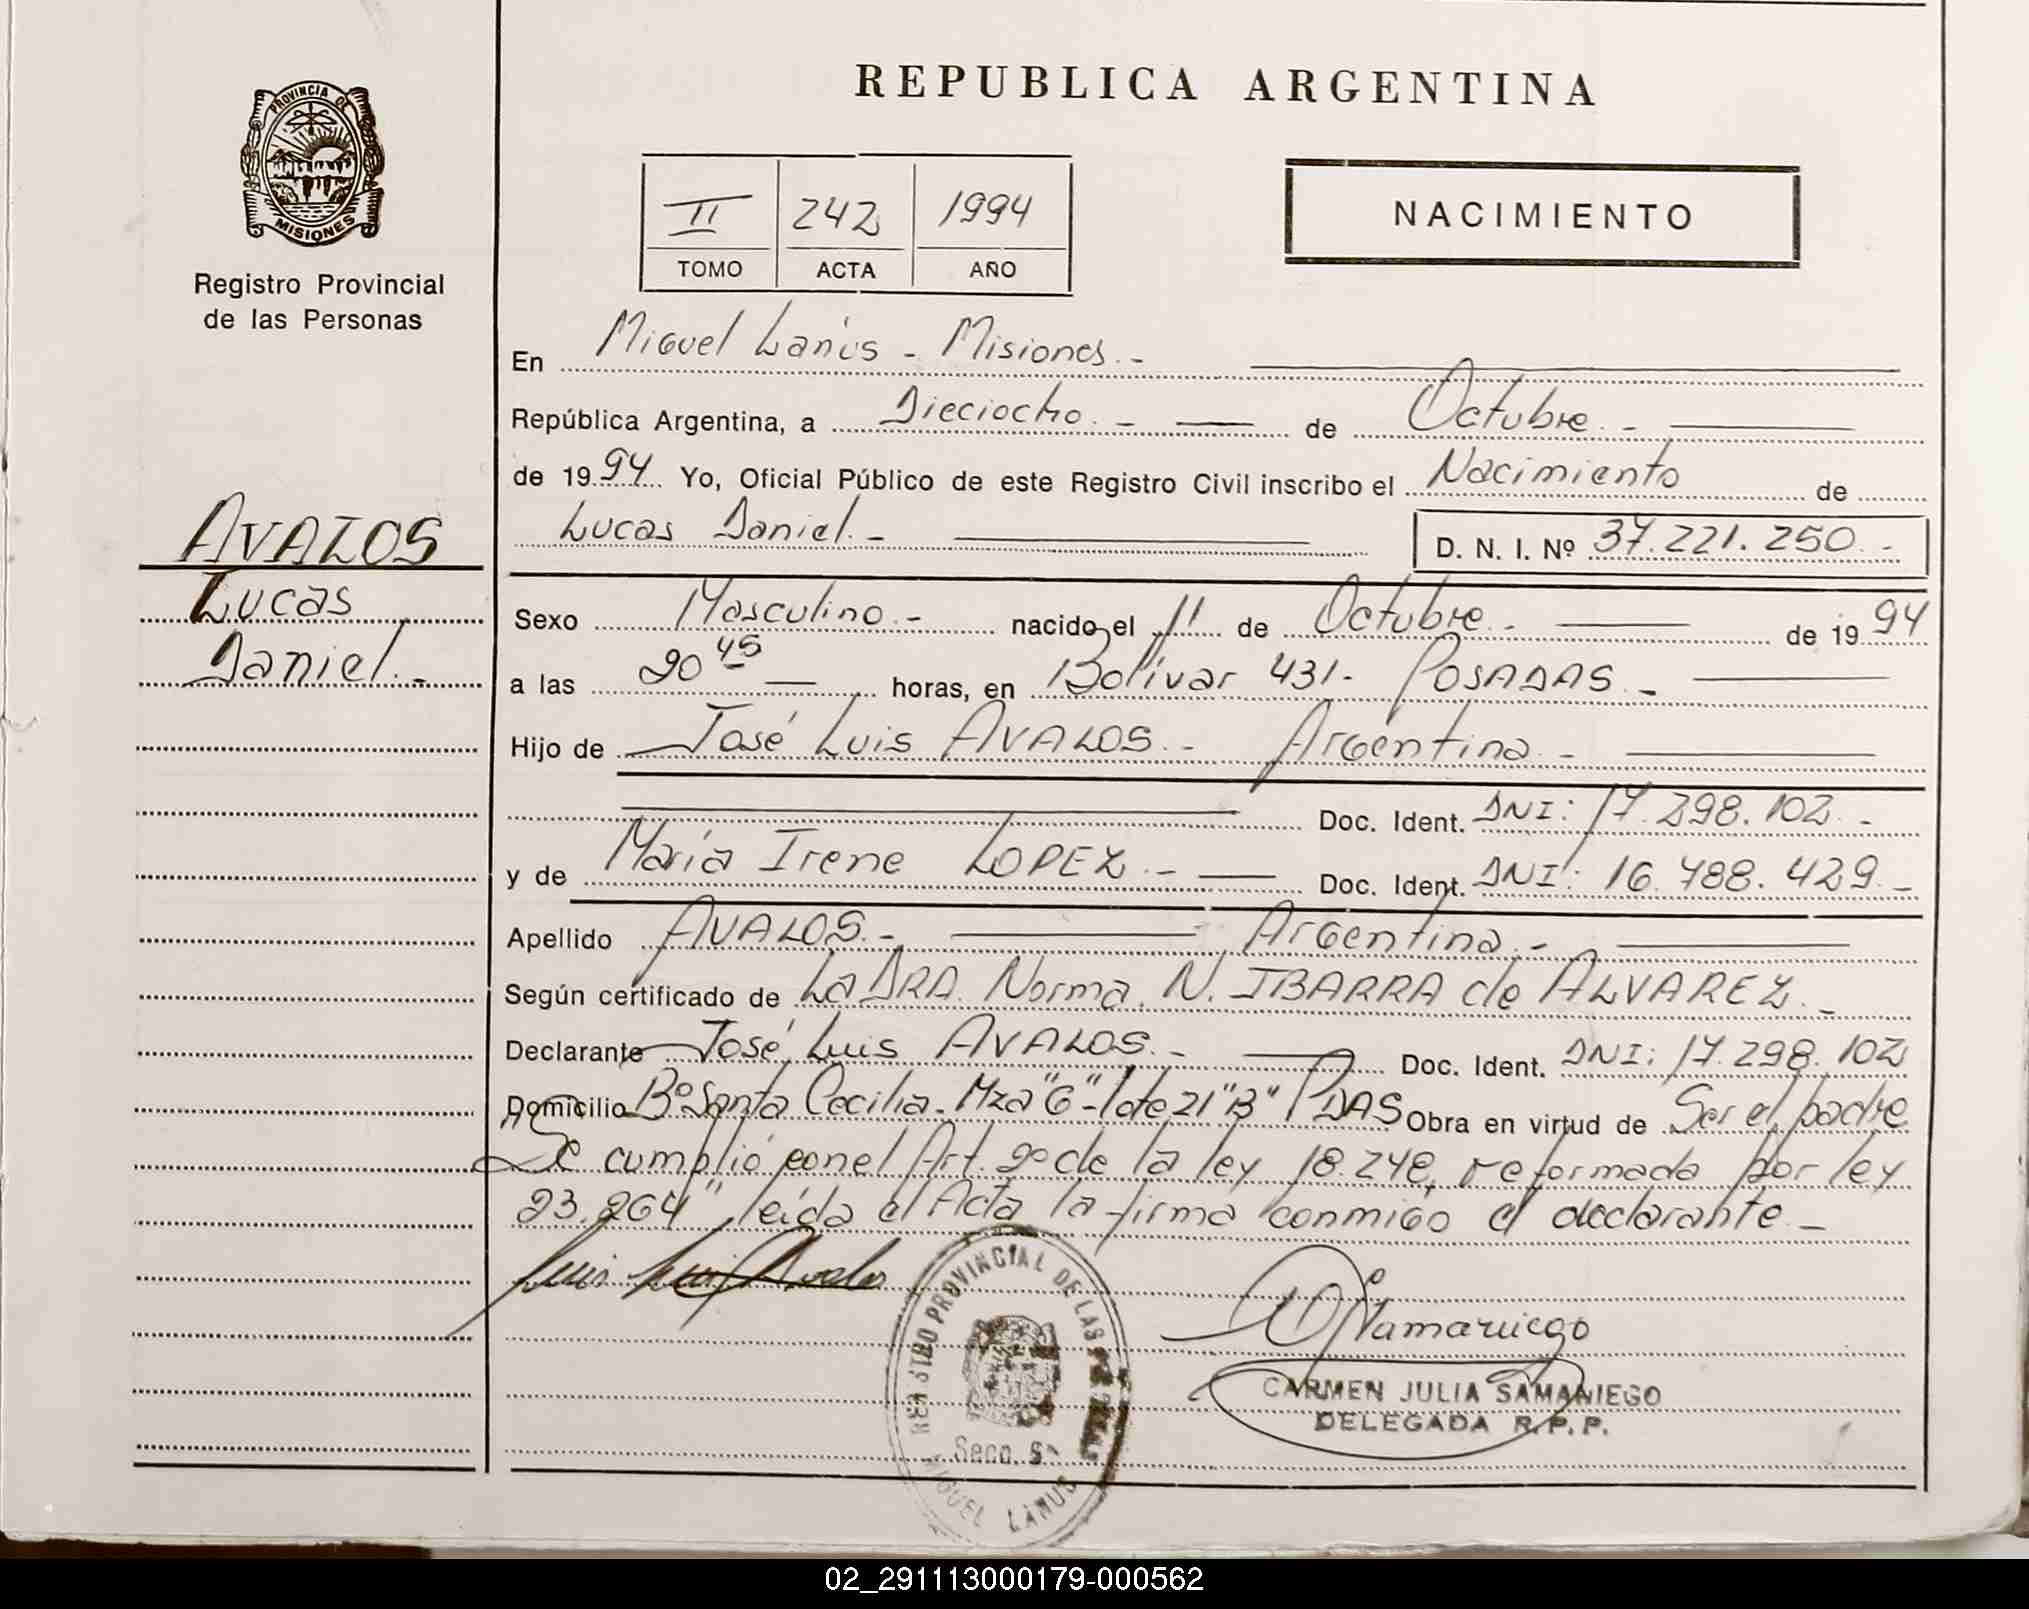 REPUBLICA ARGENTINA
PROVINCIA DE
MISIONES
Registro Provincial
de las Personas
II 242 1994
TOMO ACTA AÑO
NACIMIENTO
En Miguel Lanús - Misiones.-
República Argentina, a Dieciocho.- de Octubre.-
de 1994. Yo, Oficial Público de este Registro Civil inscribo el Nacimiento de
Lucas Daniel.- D. N. I. Nº 37.221.250.-
AVALOS
Lucas
Daniel.-
Sexo Masculino.- nacido el 11 de Octubre.- de 1994
a las 20 45 horas, en Bolívar 431.- POSADAS.-
Hijo de José Luis AVALOS.- Argentina.-
Doc. Ident. DNI: 17.298.102.-
y de María Irene LOPEZ.- Doc. Ident. DNI: 16.788.429.-
Apellido AVALOS.- Argentina.-
Según certificado de La DRA. Norma. N. IBARRA de ALVAREZ.-
Declarante José Luis AVALOS.- Doc. Ident. DNI: 17.298.102
Domicilio Bº Santa Cecilia. Mza "G"-lote 21 "B" PDAS Obra en virtud de Ser el padre
"Se cumplió con el Art. 2º de la ley 18.248, reformada por ley
23.264" leída el Acta la firma conmigo el declarante.-
REGISTRO PROVINCIAL DE LAS
Secc. 5ª
MIGUEL LANUS
Samaniego
CARMEN JULIA SAMANIEGO
DELEGADA R.P.P.
02_291113000179-000562